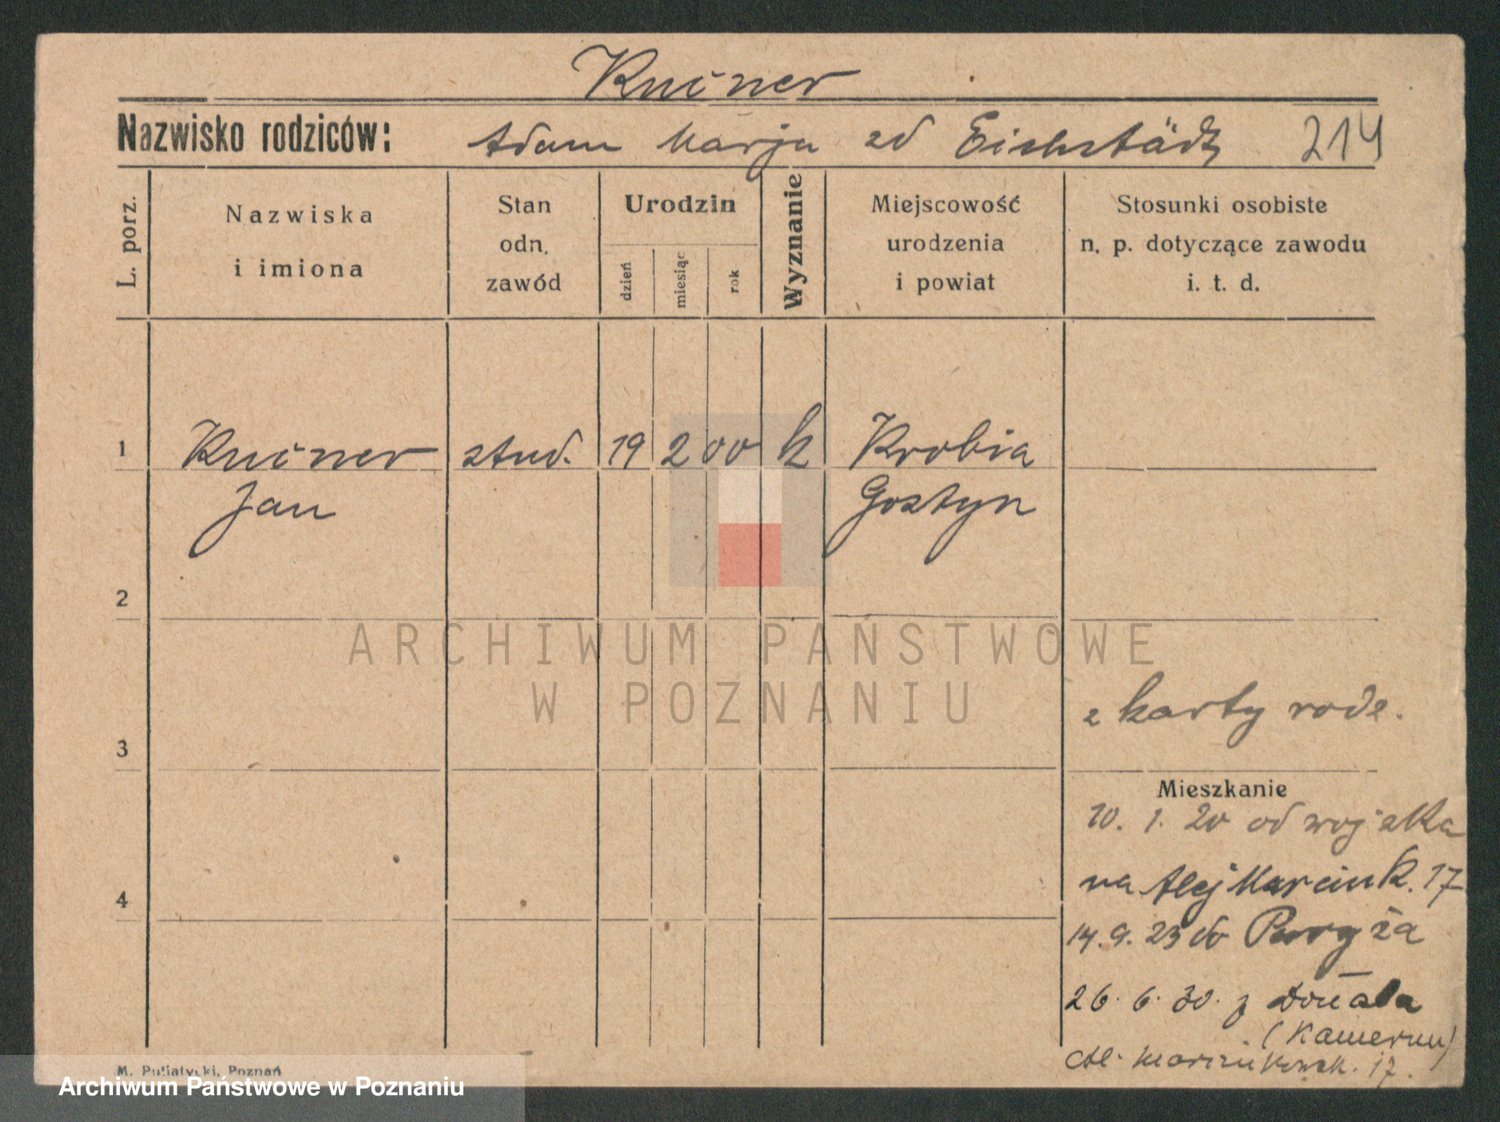 Kuiner
Nazwisko rodziców: Adam Marja zd Eichstädt 214
L. porz.
Nazwiska
i imiona
Stan
odn.
zawód
Urodzin
dzień
miesiąc
rok
Wyznanie
Miejscowość
urodzenia
i powiat
Stosunki osobiste
n. p. dotyczące zawodu
i. t. d.
1 Kuiner stud. 19 2 00 k Krobia
Jan Gostyn
2
ARCHIWUM PAŃSTWOWE
W POZNANIU
z karty rodz.
3
Mieszkanie
10. 1. 20 od wojska
na Alej Marcink. 17
4
14. 9. 23 do Paryża
26. 6. 30. z Douala
(Kamerun)
Al. Marcinkowsk. 17.
M. Putiatycki, Poznań
Archiwum Państwowe w Poznaniu